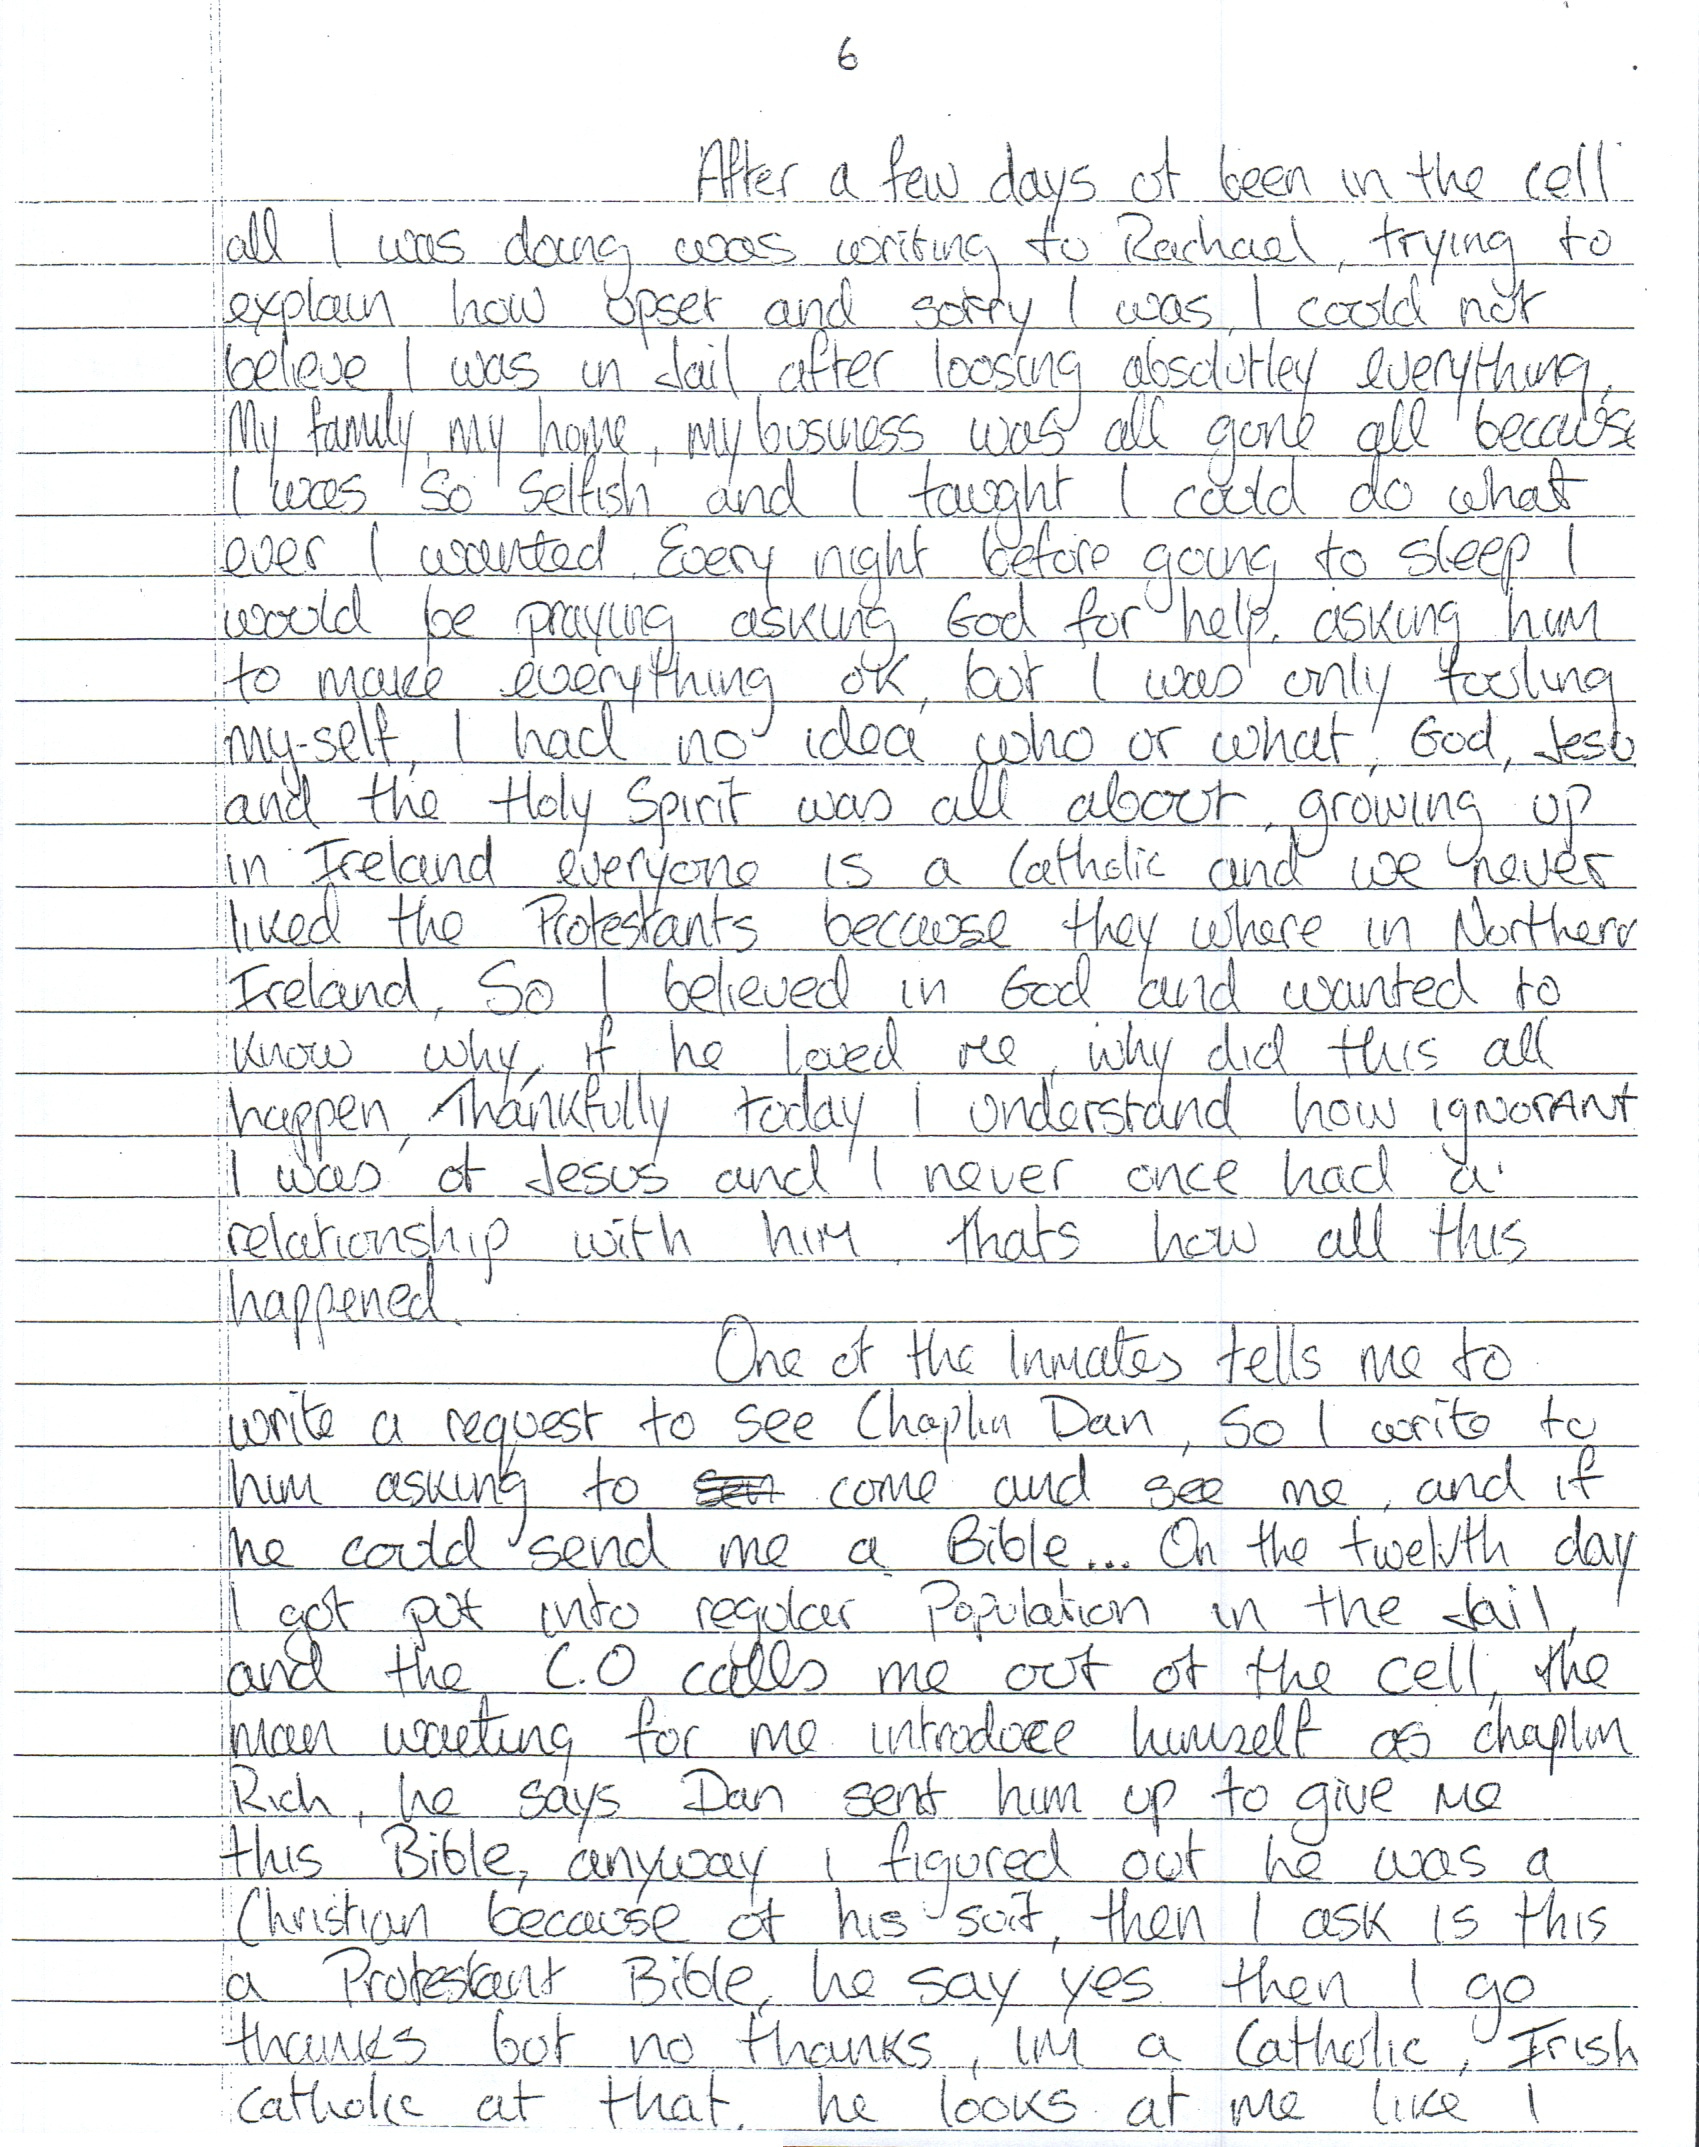 6
After a few days of been in the cell
all I was doing was writing to Rachael, trying to
explain how upset and sorry I was, I could not
believe I was in Jail after loosing absolutley everything,
My family, my home, my business was all gone all because
I was so selfish and I taught I could do what
ever I wanted. Every night before going to sleep I
would be praying asking God for help. asking him
to make everything ok, but I was only fooling
my-self, I had no idea who or what, God, Jesu
and the Holy Spirit was all about, growing up
in Ireland everyone is a Catholic and we never
liked the Protestants because they where in Northern
Ireland, So I believed in God and wanted to
know why, if he loved me, why did this all
happen, Thankfully today I understand how IgNORANT
I was of Jesus and I never once had a
relationship with him, thats how all this
happened.
One of the Inmates tells me to
write a request to see Chaplin Dan, so I write to
him asking to come and see me, and if
he could send me a Bible... On the twelvth day
I got put into regular Population in the Jail,
and the C.O calls me out of the cell, the
man waeting for me introduce himself as chaplin
Rich, he says Dan sent him up to give me
this Bible, anyway i figured out he was a
Christian because of his suit, then I ask is this
a Protestant Bible, he say yes then I go
thanks but no thanks, IM a Catholic, Irish
catholic at that. he looks at me like I